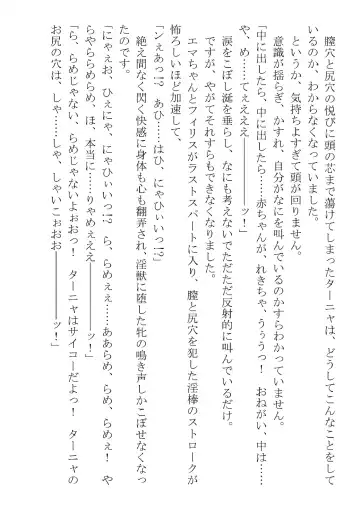 膣穴と尻穴の悦びに頭の芯まで蕩けてしまったターニャは、どうしてこんなことをして
いるのか、わからなくなっていました。
というか、気持ちよすぎて頭が回りません。
意識が揺らぎ、かすれ、自分がなにを叫んでいるのかすらわかっていません。
「中に出したら、中に出したら……赤ちゃんが、れきちゃ、うぅうっ！　おねがい、中は……
や、め……てぇえええ――――――ッ！」
涙をこぼし涎を垂らし、なにも考えないでただただ反射的に叫んでいるだけ。
ですが、やがてそれすらもできなくなりました。
エマちゃんとフィリスがラストスパートに入り、膣と尻穴を犯した淫棒のストロークが
怖ろしいほど加速して、
「ンぇあっ!?　あひ……はひ、にゃひぃいっ!?」
絶え間なく閃く快感に身体も心も翻弄され、淫獣に堕した牝の鳴き声しかこぼせなくなっ
たのです。
「にゃぇお、ひぇにゃ、にゃひいっ!?　ら、らめぇぇ……ああらめ、らめ、らめぇ！　や
らやららめらめ、ほ、本当に……りゃめぇえええ――――――ッ！」
「ら、らめじゃない、らめじゃないよぉおっ！　ターニャはサイコーだよっ！　ターニャの
お尻の穴は、しゃ……しゃ、しゃいこぉおおお――――――ッ！」